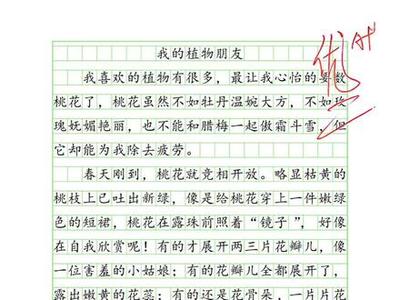 我的植物朋友
优 A+
我喜欢的植物有很多，最让我心怡的要数
桃花了，桃花虽然不如牡丹温婉大方，不如玫
瑰妩媚艳丽，也不能和腊梅一起傲霜斗雪，但
它却能为我除去疲劳。
春天刚到，桃花就竞相开放。略显枯黄的
桃枝上已吐出新绿，像是给桃花穿上一件嫩绿
色的短裙，桃花在露珠前照着“镜子”，好像
在自我欣赏呢！有的才展开两三片花瓣儿，像
一位害羞的小姑娘；有的花瓣儿全都展开了，
露出嫩黄的花蕊；有的还是花骨朵，一片片花